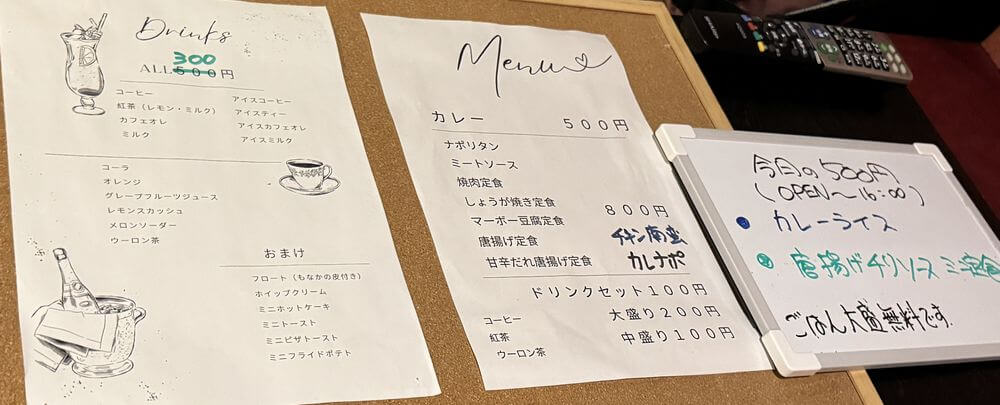 Drinks
300
ALL500円
コーヒー
紅茶（レモン・ミルク）
カフェオレ
ミルク
アイスコーヒー
アイスティー
アイスカフェオレ
アイスミルク
コーラ
オレンジ
グレープフルーツジュース
レモンスカッシュ
メロンソーダー
ウーロン茶
おまけ
フロート（もなかの皮付き）
ホイップクリーム
ミニホットケーキ
ミニトースト
ミニピザトースト
ミニフライドポテト
Menu
カレー ５００円
ナポリタン
ミートソース
焼肉定食
しょうが焼き定食
マーボー豆腐定食
唐揚げ定食
甘辛だれ唐揚げ定食
８００円
チキン南蛮
カレナポ
ドリンクセット１００円
コーヒー
紅茶
ウーロン茶
大盛り２００円
中盛り１００円
今日の500円
(OPEN〜16:00)
カレーライス
唐揚げチリソース ミニ定食
ごはん大盛無料です.